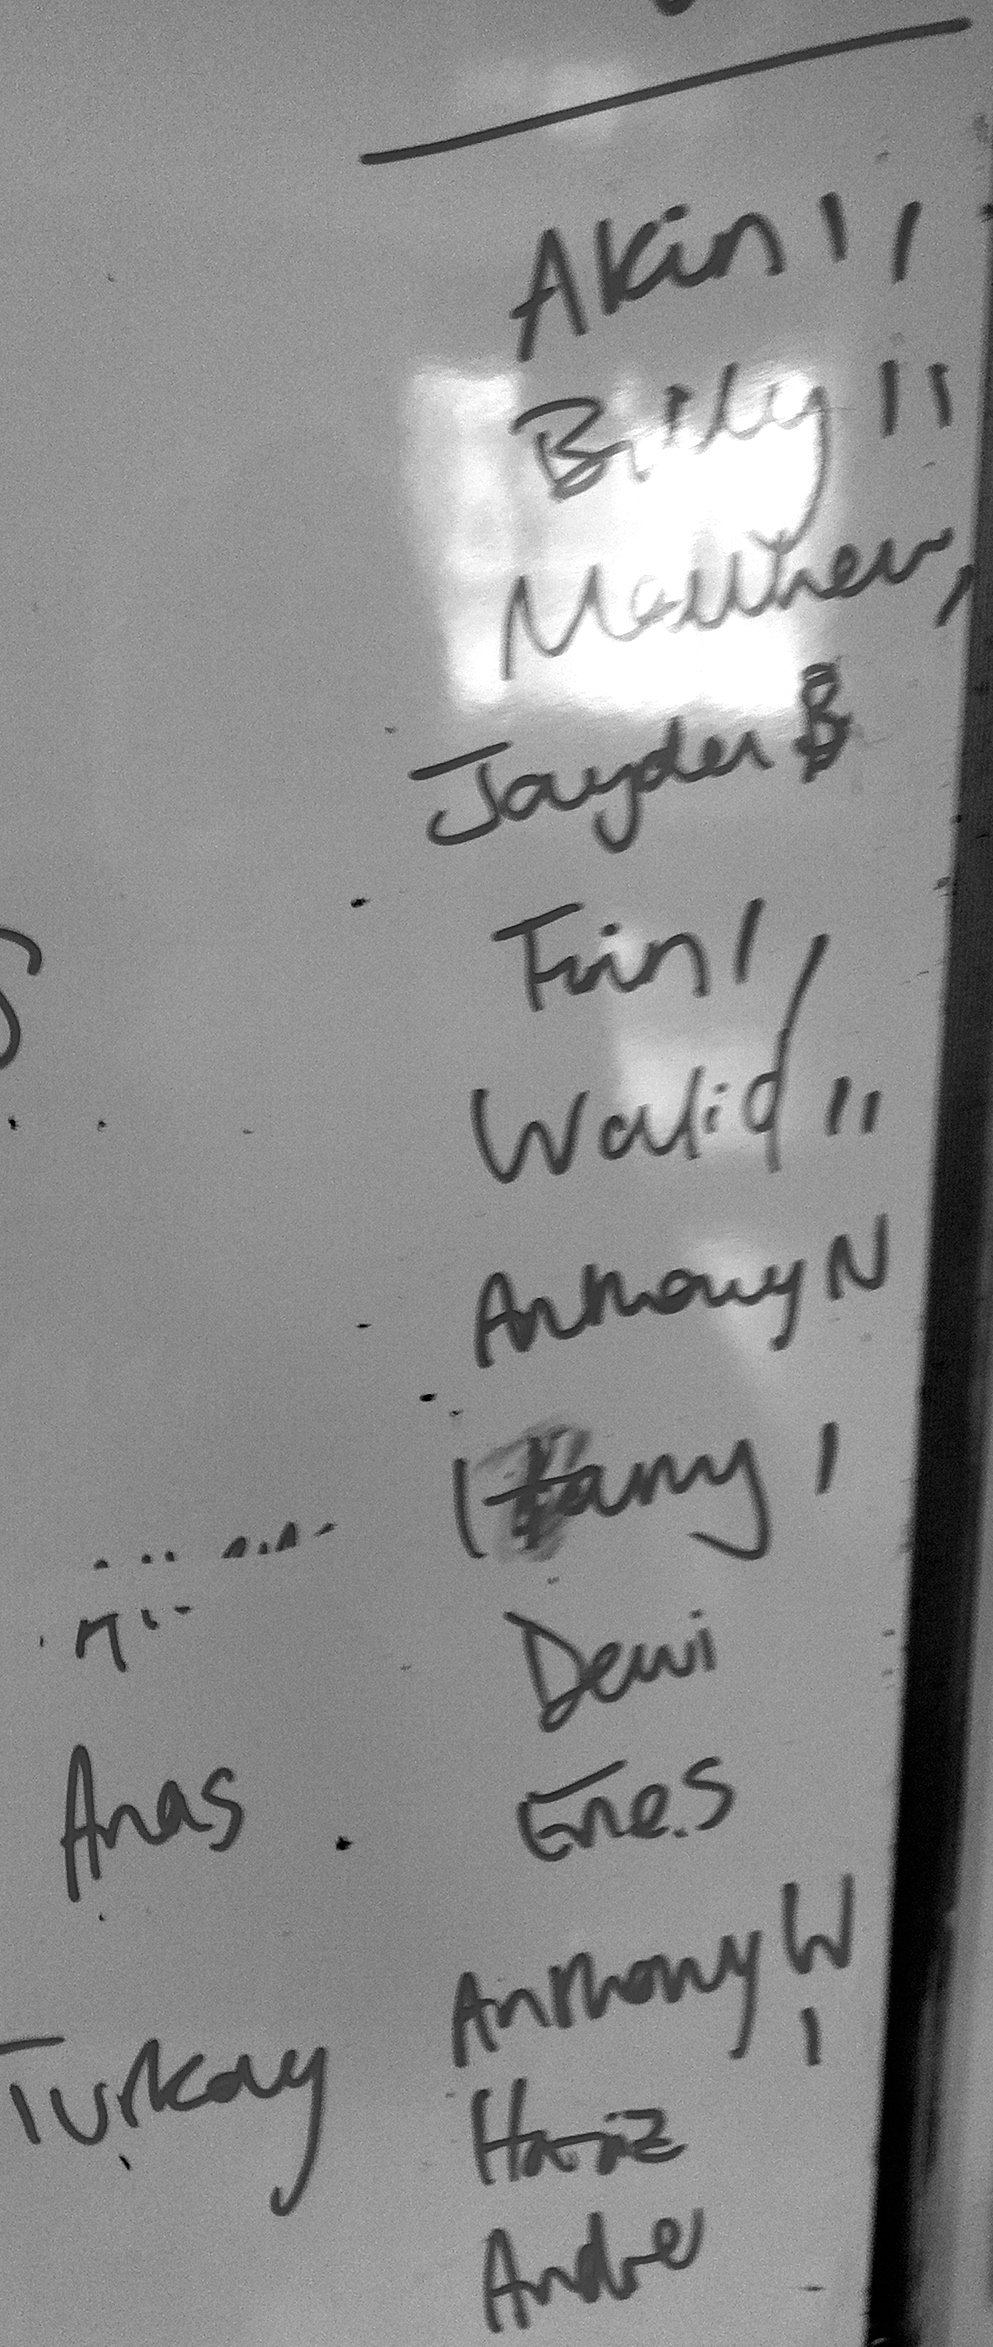 Akin I I
Billy I I
Matthew I
Jayden B
Finn I I
Walid I I
Anthony N
Harry I
Dewi
Anas
Enes
Anthony W I
Turkay
Hafiz
Andre